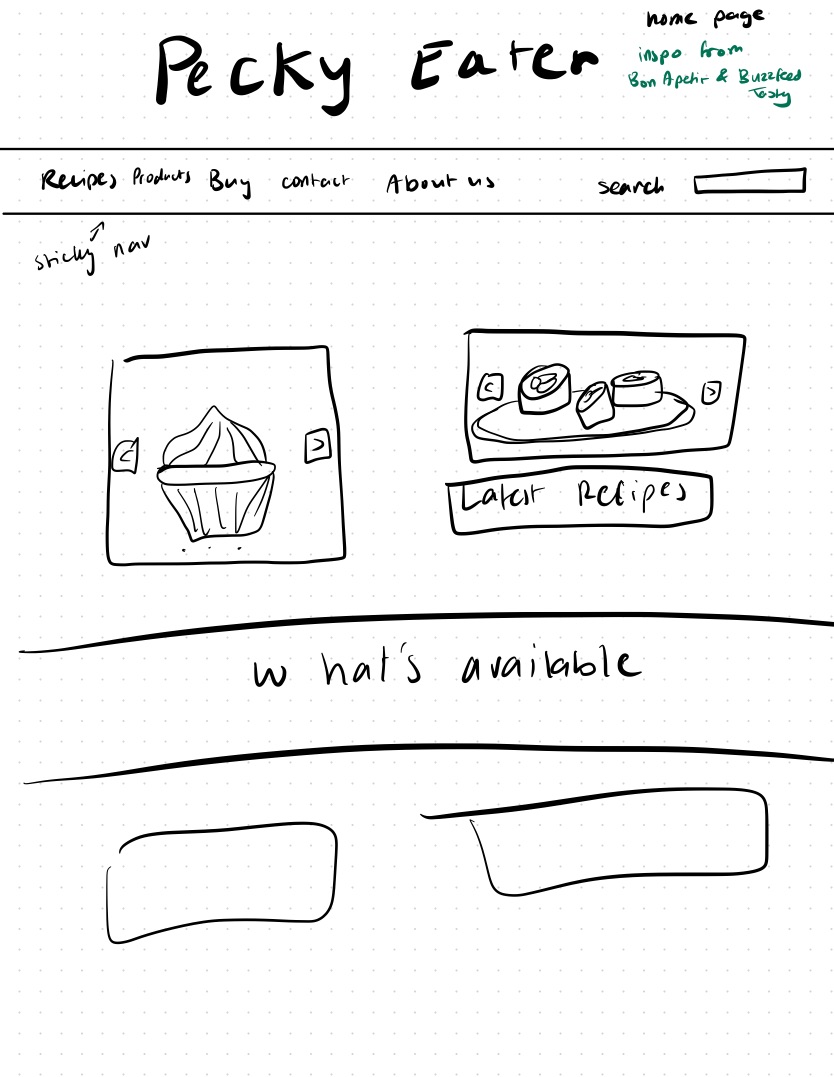 home page
Pecky Eater
inspo from
Bon Apetit & Buzzfeed
Tasty
Recipes Products Buy contact About us search
sticky nav
< >
< >
Latest Recipes
What's available